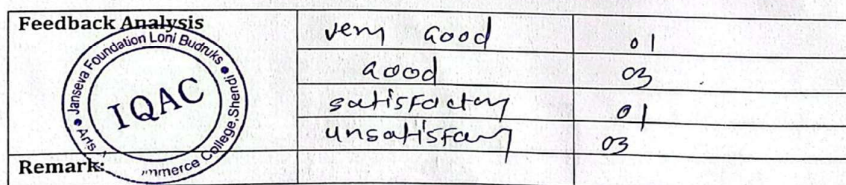 Feedback Analysis
very Good 01
Good 03
satisfactory 01
unsatisfary 03
Remark:
Janseva Foundation Loni Budruks
IQAC
Arts mmerce College, Shendi